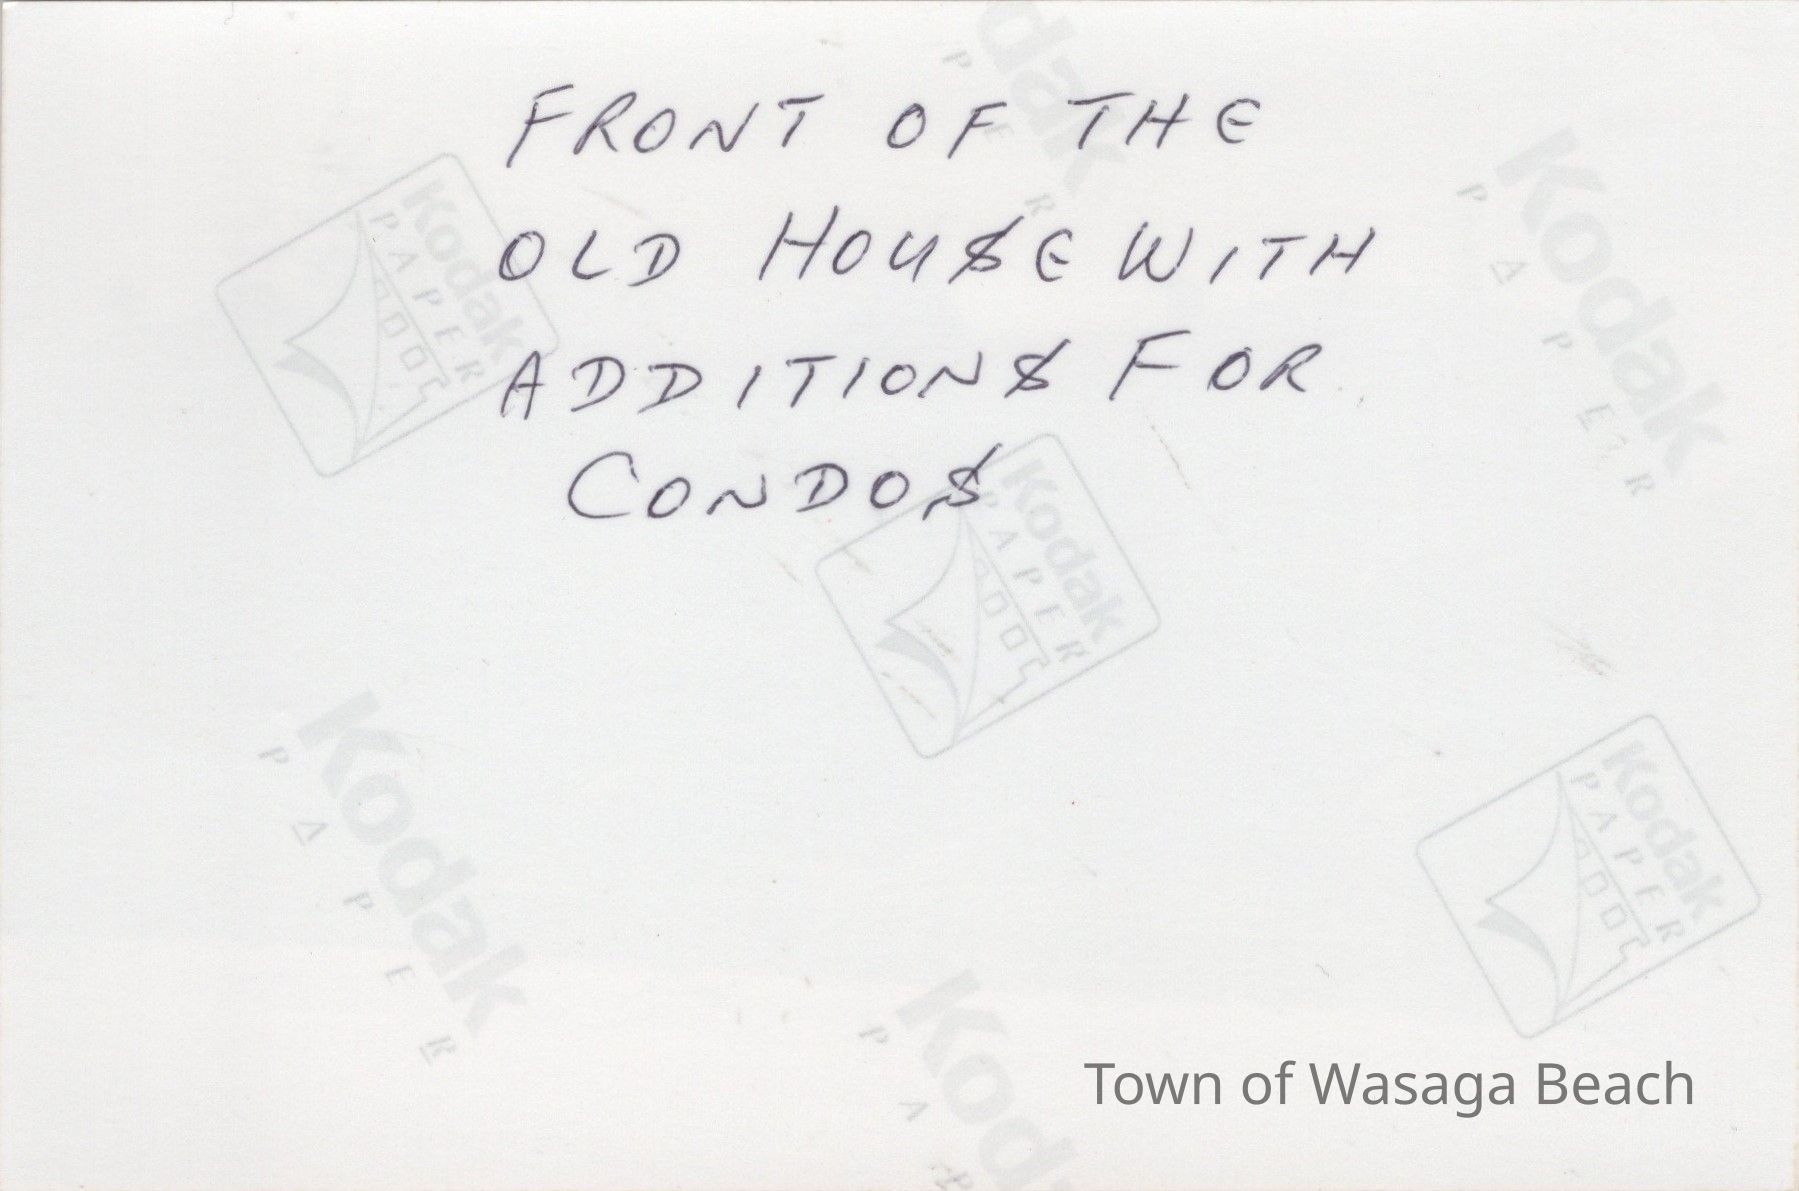 FRONT OF THE
OLD HOUSE WITH
ADDITIONS FOR
CONDOS
Kodak
PAPER
Kodak
PAPER
Kodak
PAPER
Kodak
PAPER
Kodak
PAPER
Kodak
PAPER
Town of Wasaga Beach